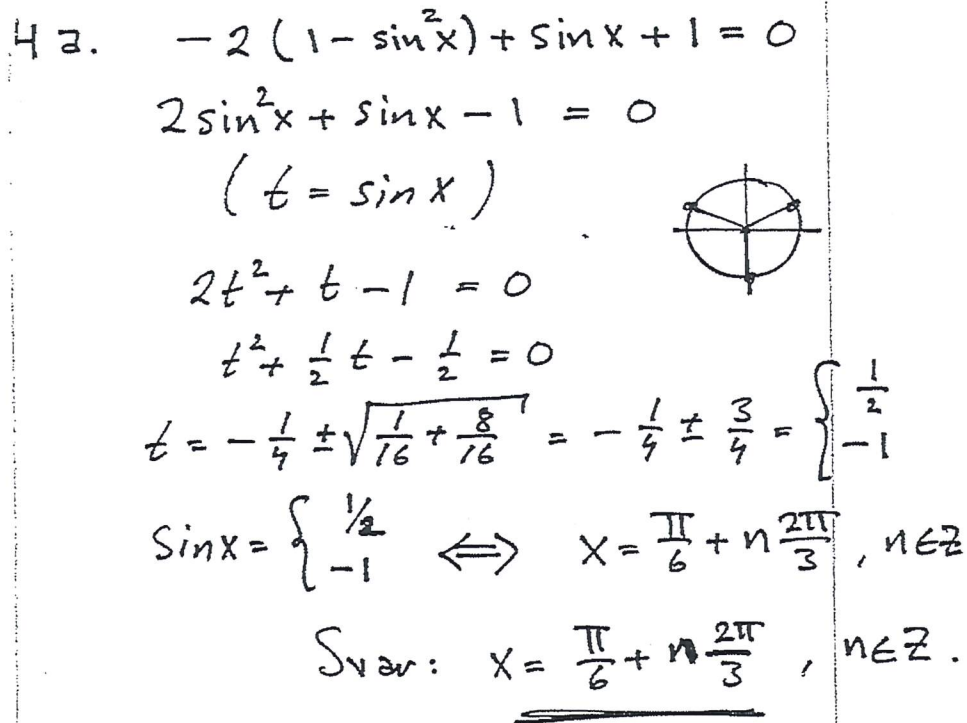 4a. -2(1 - sin²x) + sin x + 1 = 0
2sin²x + sin x - 1 = 0
(t = sin x)
2t² + t - 1 = 0
t² + 1/2 t - 1/2 = 0
t = -1/4 ± √(1/16 + 8/16) = -1/4 ± 3/4 = { 1/2 -1
sin x = { 1/2 -1 ⇔ x = π/6 + n 2π/3, n∈Z
Svar: x = π/6 + n 2π/3, n∈Z.